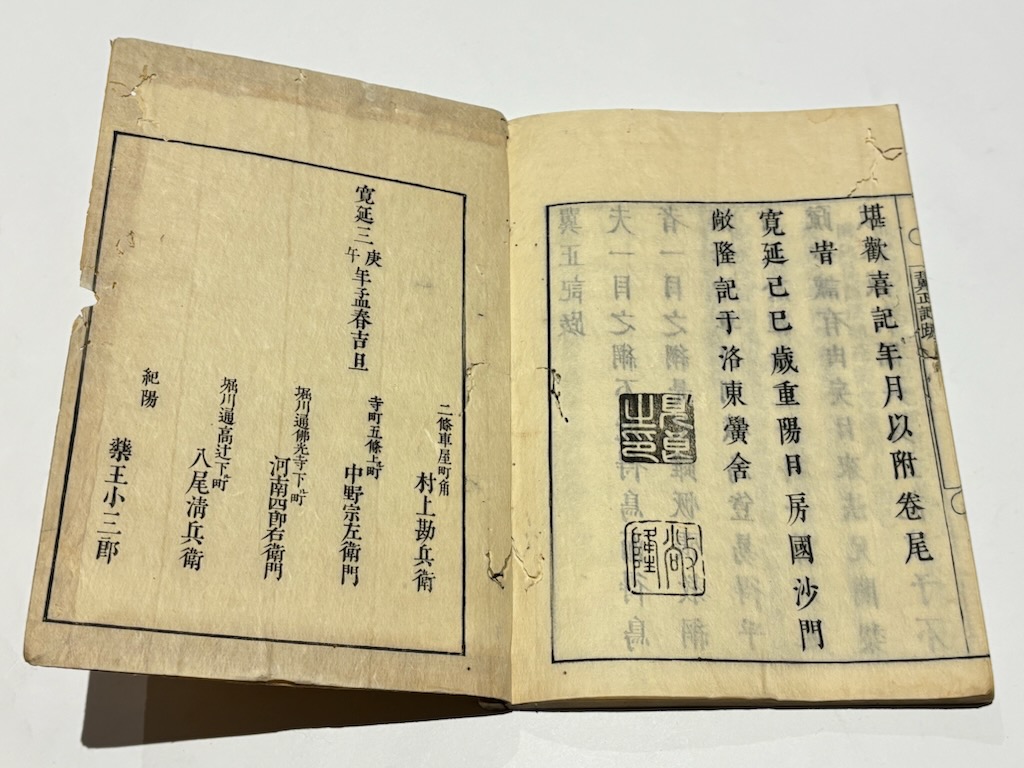 堪歡喜記年月以附卷尾
旹
寛延己巳歳重陽日房國沙門
敞隆記于洛東黌舍
翼正記跋
敞隆
寛延三庚午年孟春吉旦
二條車屋町角
村上勘兵衛
寺町五條上ル町
中野宗左衛門
堀川通佛光寺下ル町
河南四郎右衛門
堀川通高辻下ル町
八尾清兵衛
紀陽
藥王小三郎